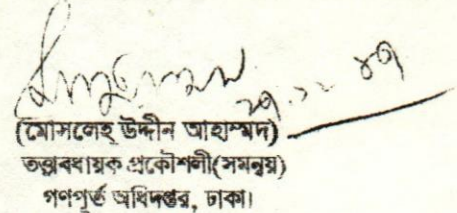 (মোসলেহ্ উদ্দীন আহাম্মদ)
তত্ত্বাবধায়ক প্রকৌশলী(সমন্বয়)
গণপূর্ত অধিদপ্তর, ঢাকা।